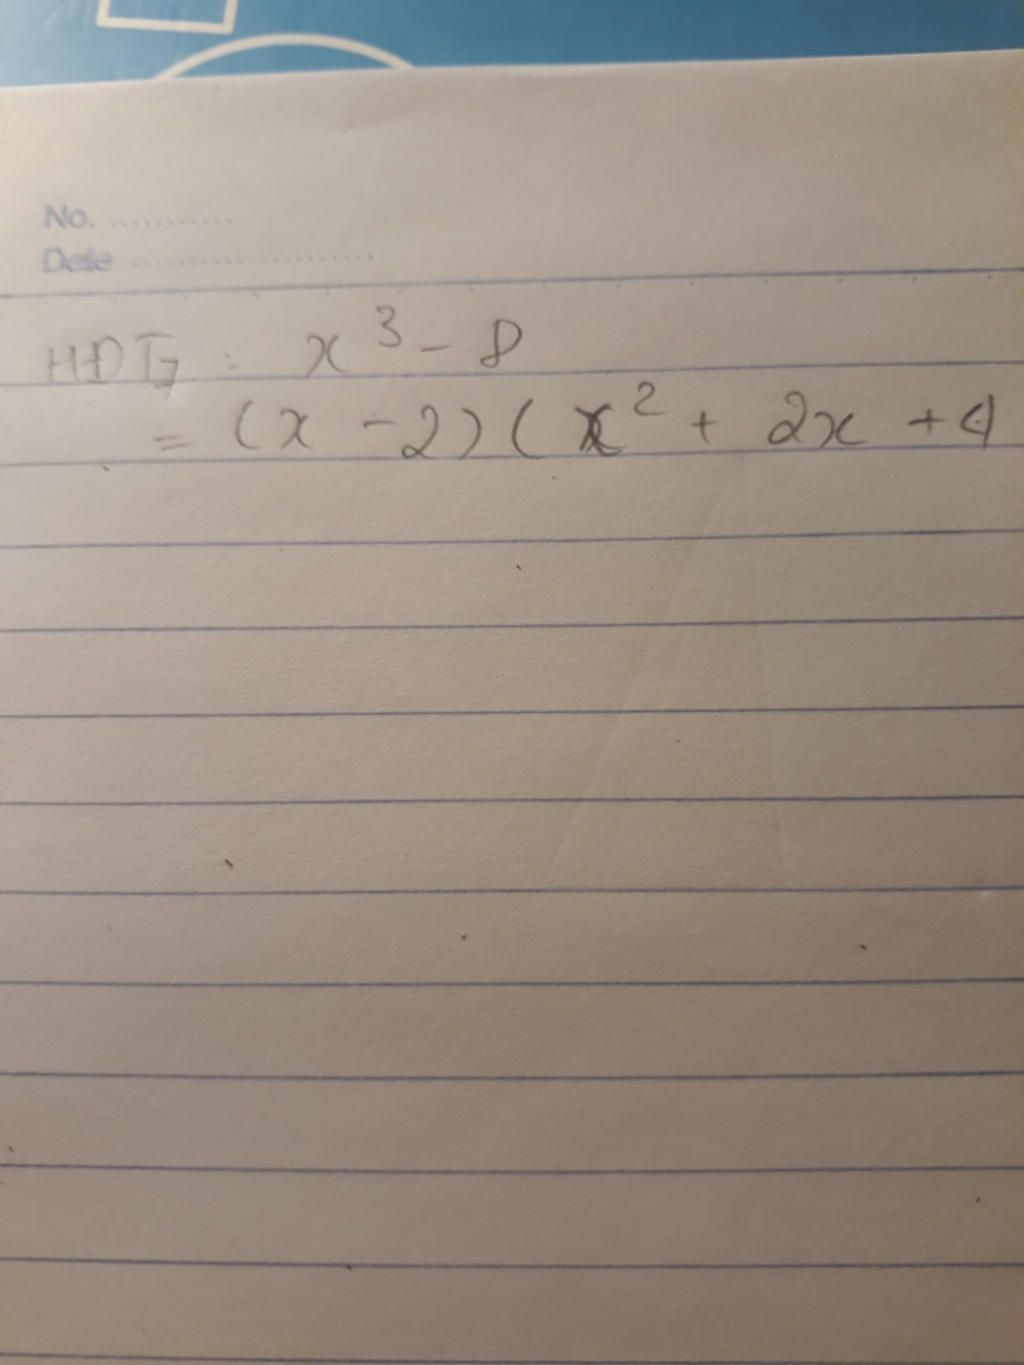 No. ...........
Date ....................
HĐT : x³ - 8
= (x - 2)(x² + 2x + 4